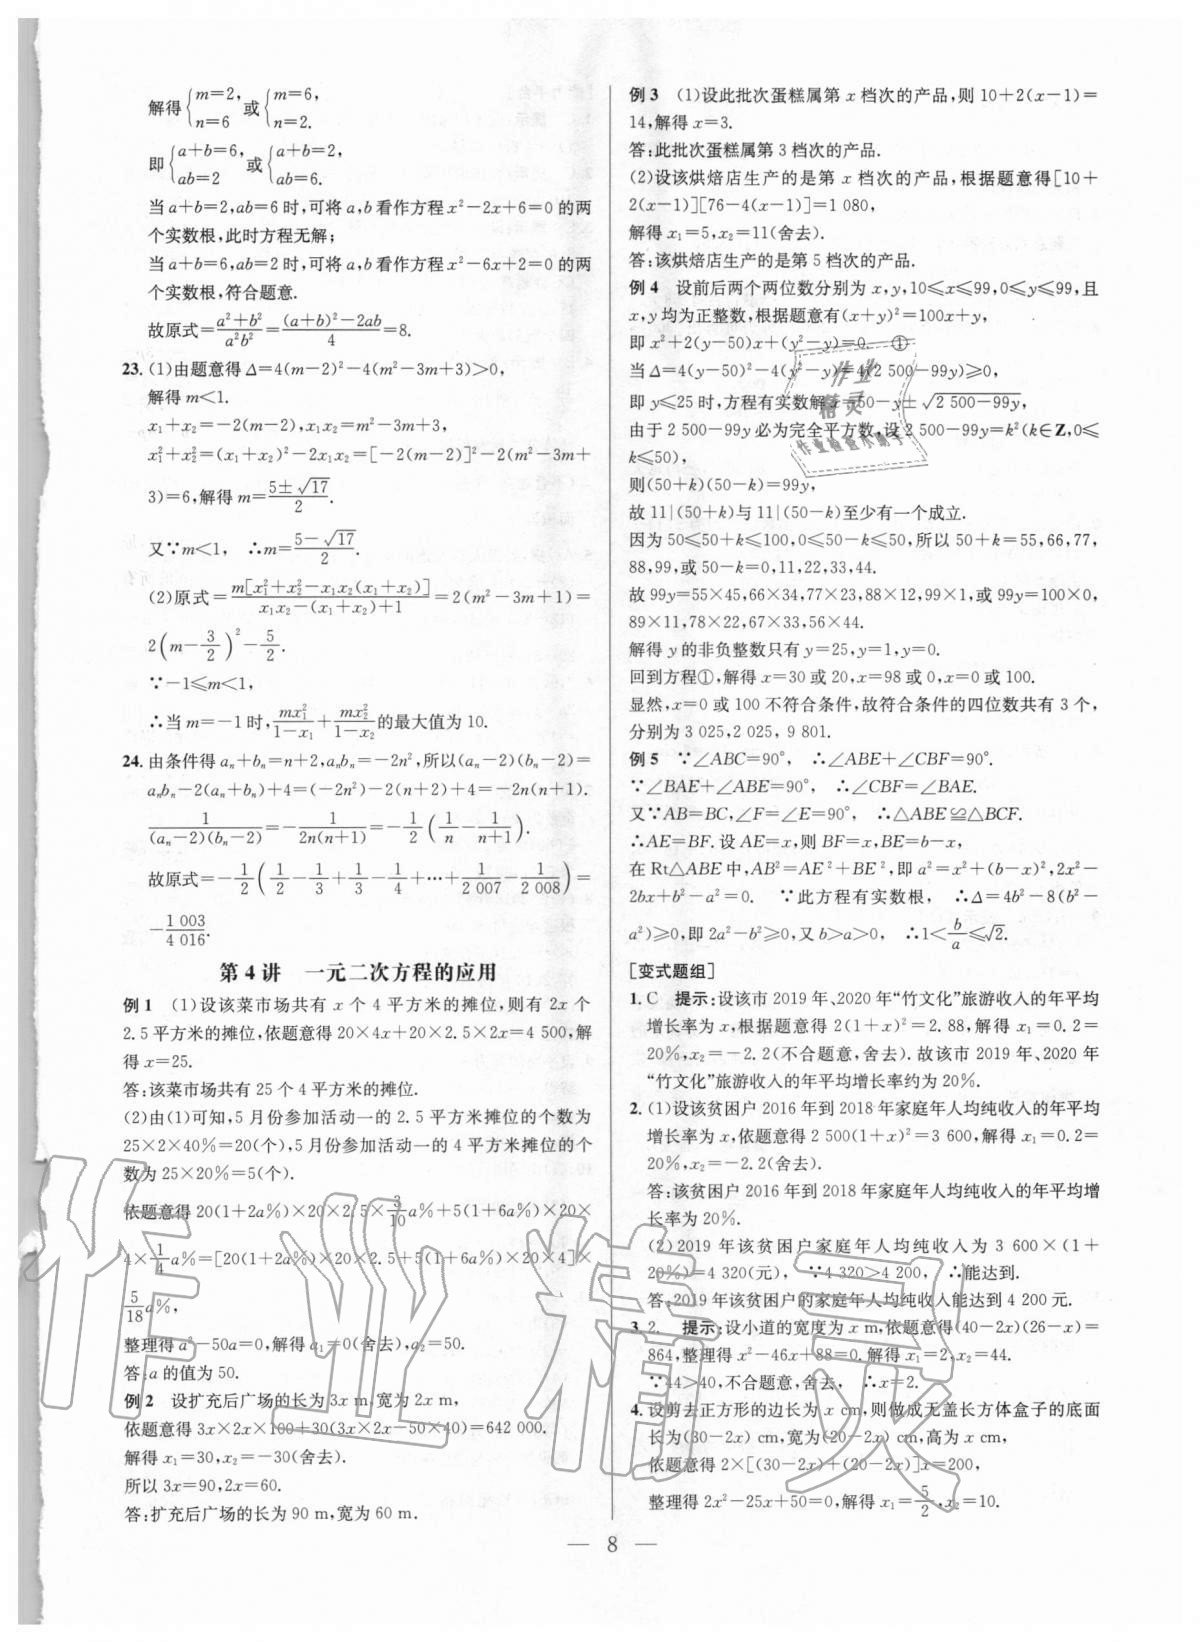 解得{m=2, n=6 或{m=6, n=2.
即{a+b=6, ab=2 或{a+b=2, ab=6.
当a+b=2,ab=6时,可将a,b看作方程x²-2x+6=0的两
个实数根,此时方程无解;
当a+b=6,ab=2时,可将a,b看作方程x²-6x+2=0的两
个实数根,符合题意.
故原式=(a²+b²)/(a²b²)=((a+b)²-2ab)/4=8.
23.(1)由题意得Δ=4(m-2)²-4(m²-3m+3)>0,
解得m<1.
x₁+x₂=-2(m-2),x₁x₂=m²-3m+3,
x₁²+x₂²=(x₁+x₂)²-2x₁x₂=[-2(m-2)]²-2(m²-3m+
3)=6,解得m=(5±√17)/2.
又∵m<1, ∴m=(5-√17)/2.
(2)原式=m[x₁²+x₂²-x₁x₂(x₁+x₂)]/(x₁x₂-(x₁+x₂)+1)=2(m²-3m+1)=
2(m-3/2)²-5/2.
∵-1≤m<1,
∴当m=-1时,mx₁²/(1-x₁)+mx₂²/(1-x₂)的最大值为10.
24.由条件得aₙ+bₙ=n+2,aₙbₙ=-2n²,所以(aₙ-2)(bₙ-2)=
aₙbₙ-2(aₙ+bₙ)+4=(-2n²)-2(n+2)+4=-2n(n+1).
1/((aₙ-2)(bₙ-2))=-1/(2n(n+1))=-1/2(1/n-1/(n+1)).
故原式=-1/2(1/2-1/3+1/3-1/4+…+1/2 007-1/2 008)=
-1 003/4 016.
第4讲 一元二次方程的应用
例1 (1)设该菜市场共有x个4平方米的摊位,则有2x个
2.5平方米的摊位,依题意得20×4x+20×2.5×2x=4 500,解
得x=25.
答:该菜市场共有25个4平方米的摊位.
(2)由(1)可知,5月份参加活动一的2.5平方米摊位的个数为
25×2×40%=20(个),5月份参加活动一的4平方米摊位的个
数为25×20%=5(个).
依题意得20(1+2a%)×20×2.5×3/10a%+5(1+6a%)×20×
4×1/4a%=[20(1+2a%)×20×2.5+5(1+6a%)×20×4]×
5/18a%,
整理得a²-50a=0,解得a₁=0(舍去),a₂=50.
答:a的值为50.
例2 设扩充后广场的长为3x m,宽为2x m,
依题意得3x×2x×100+30(3x×2x-50×40)=642 000.
解得x₁=30,x₂=-30(舍去).
所以3x=90,2x=60.
答:扩充后广场的长为90 m,宽为60 m.
例3 (1)设此批次蛋糕属第x档次的产品,则10+2(x-1)=
14,解得x=3.
答:此批次蛋糕属第3档次的产品.
(2)设该烘焙店生产的是第x档次的产品,根据题意得[10+
2(x-1)][76-4(x-1)]=1 080,
解得x₁=5,x₂=11(舍去).
答:该烘焙店生产的是第5档次的产品.
例4 设前后两个两位数分别为x,y,10≤x≤99,0≤y≤99,且
x,y均为正整数,根据题意有(x+y)²=100x+y,
即x²+2(y-50)x+(y²-y)=0. ①
当Δ=4(y-50)²-4(y²-y)=4(2 500-99y)≥0,
即y≤25时,方程有实数解x=50-y±√(2 500-99y),
由于2 500-99y必为完全平方数,设2 500-99y=k²(k∈Z,0≤
k≤50),
则(50+k)(50-k)=99y,
故11|(50+k)与11|(50-k)至少有一个成立.
因为50≤50+k≤100,0≤50-k≤50,所以50+k=55,66,77,
88,99,或50-k=0,11,22,33,44.
故99y=55×45,66×34,77×23,88×12,99×1,或99y=100×0,
89×11,78×22,67×33,56×44.
解得y的非负整数只有y=25,y=1,y=0.
回到方程①,解得x=30或20,x=98或0,x=0或100.
显然,x=0或100不符合条件,故符合条件的四位数共有3个,
分别为3 025,2 025,9 801.
例5 ∵∠ABC=90°, ∴∠ABE+∠CBF=90°.
∵∠BAE+∠ABE=90°, ∴∠CBF=∠BAE.
又∵AB=BC,∠F=∠E=90°, ∴△ABE≌△BCF.
∴AE=BF.设AE=x,则BF=x,BE=b-x,
在Rt△ABE中,AB²=AE²+BE²,即a²=x²+(b-x)²,2x²-
2bx+b²-a²=0. ∵此方程有实数根, ∴Δ=4b²-8(b²-
a²)≥0,即2a²-b²≥0,又b>a>0, ∴1<b/a≤√2.
[变式题组]
1.C 提示:设该市2019年、2020年“竹文化”旅游收入的年平均
增长率为x,根据题意得2(1+x)²=2.88,解得x₁=0.2=
20%,x₂=-2.2(不合题意,舍去).故该市2019年、2020年
“竹文化”旅游收入的年平均增长率约为20%.
2.(1)设该贫困户2016年到2018年家庭年人均纯收入的年平均
增长率为x,依题意得2 500(1+x)²=3 600,解得x₁=0.2=
20%,x₂=-2.2(舍去).
答:该贫困户2016年到2018年家庭年人均纯收入的年平均增
长率为20%.
(2)2019年该贫困户家庭年人均纯收入为3 600×(1+
20%)=4 320(元), ∵4 320>4 200, ∴能达到.
答:2019年该贫困户的家庭年人均纯收入能达到4 200元.
3.2. 提示:设小道的宽度为x m,依题意得(40-2x)(26-x)=
864,整理得x²-46x+88=0.解得x₁=2,x₂=44.
∵44>40,不合题意,舍去, ∴x=2.
4.设剪去正方形的边长为x cm,则做成无盖长方体盒子的底面
长为(30-2x) cm,宽为(20-2x) cm,高为x cm,
依题意得2×[(30-2x)+(20-2x)]x=200,
整理得2x²-25x+50=0,解得x₁=5/2,x₂=10.
— 8 —
作业精灵
作业
精灵
作业检查小助手